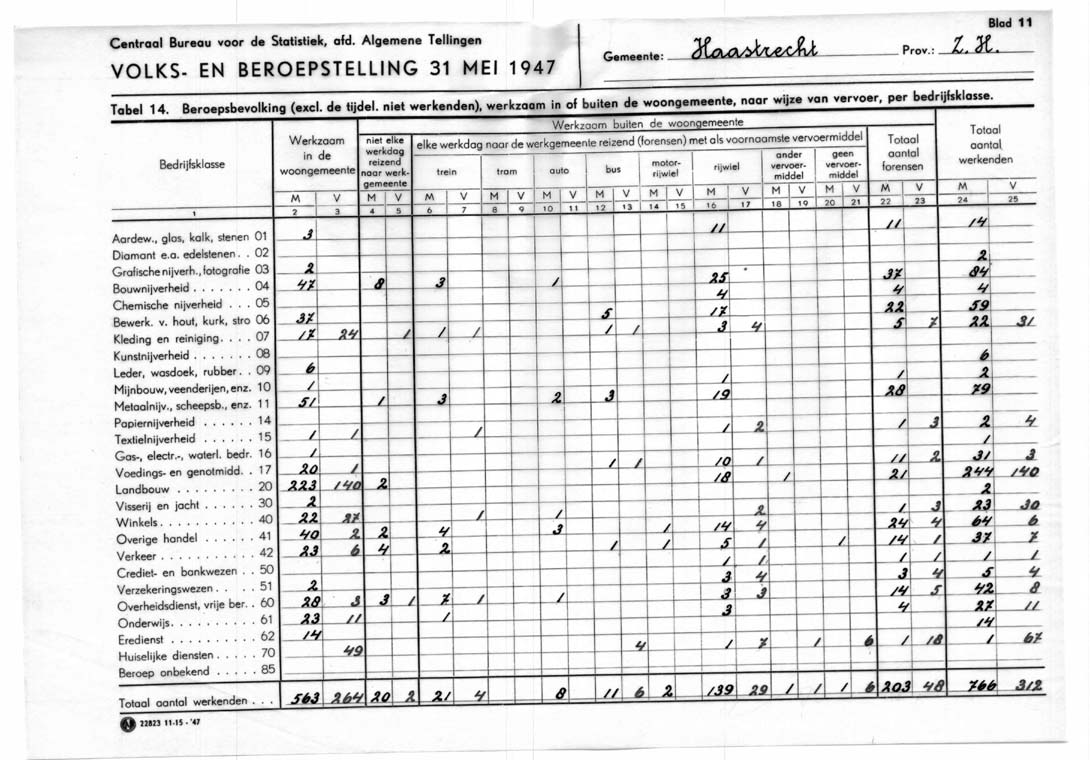 Blad 11
Centraal Bureau voor de Statistiek, afd. Algemene Tellingen
VOLKS- EN BEROEPSTELLING 31 MEI 1947
Gemeente: Haastrecht Prov.: Z. H.
Tabel 14. Beroepsbevolking (excl. de tijdel. niet werkenden), werkzaam in of buiten de woongemeente, naar wijze van vervoer, per bedrijfsklasse.
Bedrijfsklasse
Werkzaam
in de
woongemeente
Werkzaam buiten de woongemeente
niet elke
werkdag
reizend
naar werk-
gemeente
elke werkdag naar de werkgemeente reizend (forensen) met als voornaamste vervoermiddel
trein
tram
auto
bus
motor-
rijwiel
rijwiel
ander
vervoer-
middel
geen
vervoer-
middel
Totaal
aantal
forensen
Totaal
aantal
werkenden
M V M V M V M V M V M V M V M V M V M V M V M V
1 2 3 4 5 6 7 8 9 10 11 12 13 14 15 16 17 18 19 20 21 22 23 24 25
Aardew., glas, kalk, stenen 01 3 11 11 14
Diamant e.a. edelstenen . . 02
Grafische nijverh., fotografie 03 2 2
Bouwnijverheid . . . . . . . 04 47 8 3 1 25 37 84
Chemische nijverheid . . . 05 4 4 4
Bewerk. v. hout, kurk, stro 06 37 5 17 22 59
Kleding en reiniging. . . . 07 17 24 1 1 1 1 1 3 4 5 7 22 31
Kunstnijverheid . . . . . . . 08
Leder, wasdoek, rubber. . 09 6 6
Mijnbouw, veenderijen, enz. 10 1 1 1 2
Metaalnijv., scheepsb., enz. 11 51 1 3 2 3 19 28 79
Papiernijverheid . . . . . . 14
Textielnijverheid . . . . . . 15 1 1 1 1 2 1 3 2 4
Gas-, electr.-, waterl. bedr. 16 1 1
Voedings- en genotmidd. . 17 20 1 1 1 10 1 11 2 31 3
Landbouw . . . . . . . . . 20 223 140 2 18 1 21 244 140
Visserij en jacht . . . . . . 30 2 2
Winkels . . . . . . . . . . . 40 22 27 1 1 2 1 3 23 30
Overige handel . . . . . . 41 40 2 2 4 3 1 14 4 24 4 64 6
Verkeer . . . . . . . . . . . 42 23 6 4 2 1 1 5 1 1 14 1 37 7
Crediet- en bankwezen . . 50 1 1 1 1 1 1
Verzekeringswezen . . . . 51 2 3 4 3 4 5 4
Overheidsdienst, vrije ber. . 60 28 3 3 1 7 1 1 3 3 14 5 42 8
Onderwijs. . . . . . . . . . 61 23 11 1 3 4 27 11
Eredienst . . . . . . . . . . 62 14 14
Huiselijke diensten . . . . . 70 49 4 1 7 1 6 1 18 1 67
Beroep onbekend . . . . . 85
Totaal aantal werkenden . . . 563 264 20 2 21 4 8 11 6 2 139 29 1 1 1 6 203 48 766 312
22823 11-15 - '47